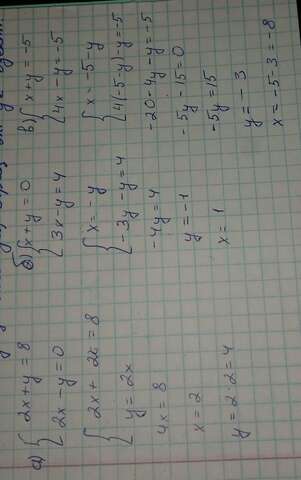 а) { 2x + y = 8
2x - y = 0
{ 2x + 2x = 8
y = 2x
4x = 8
x = 2
y = 2·2 = 4
б) { x + y = 0
3x - y = 4
{ x = -y
-3y - y = 4
-4y = 4
y = -1
x = 1
в) { x + y = -5
4x - y = -5
{ x = -5 - y
4(-5-y) - y = -5
-20 - 4y - y = -5
-5y - 15 = 0
-5y = 15
y = -3
x = -5 - 3 = -8